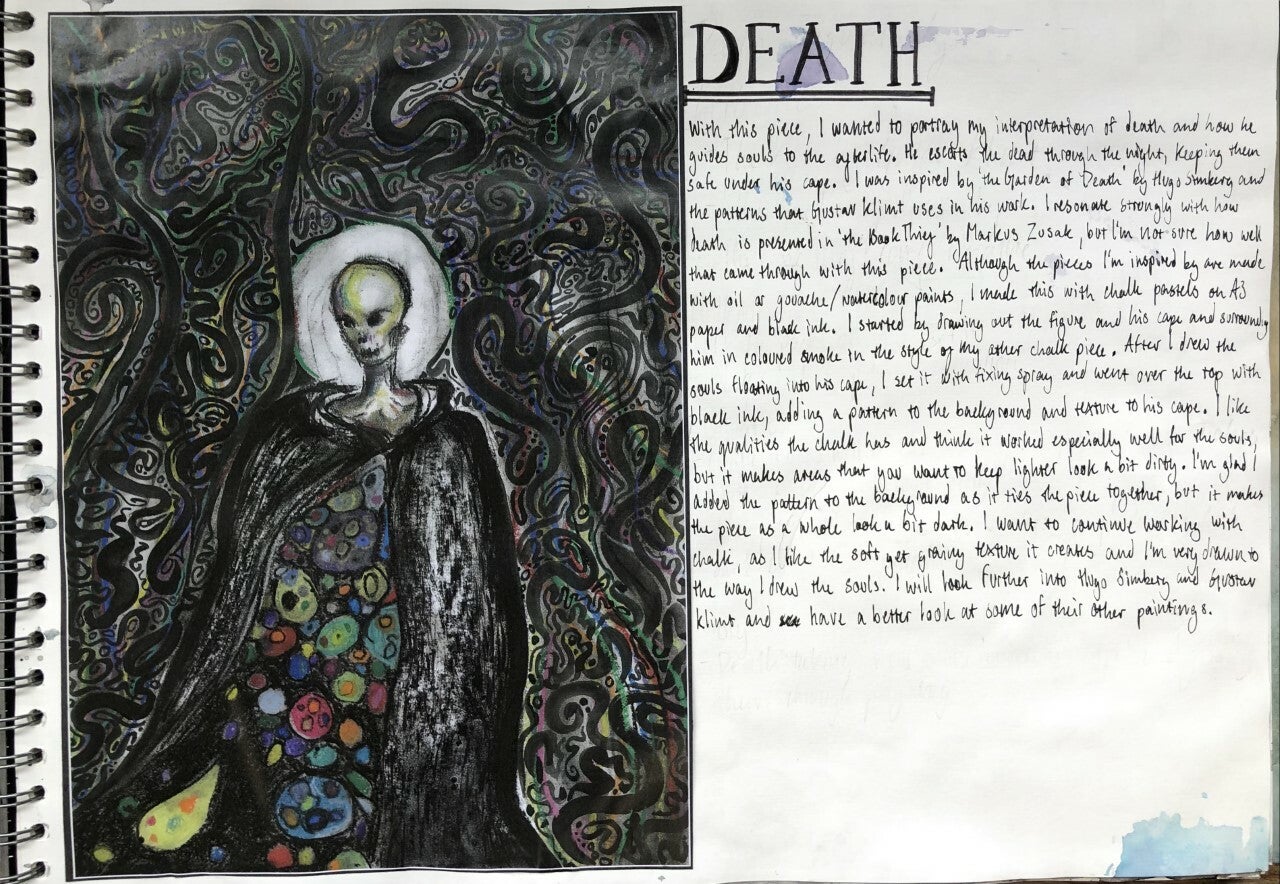 DEATH
With this piece, I wanted to portray my interpretation of death and how he
guides souls to the afterlife. He escorts the dead through the night, keeping them
safe under his cape. I was inspired by 'the Garden of Death' by Hugo Simberg and
the patterns that Gustav Klimt uses in his work. I resonate strongly with how
death is presented in 'the Book Thief' by Markus Zusak, but I'm not sure how well
that came through with this piece. Although the pieces I'm inspired by are made
with oil or gouache/watercolour paints, I made this with chalk pastels on A3
paper and black ink. I started by drawing out the figure and his cape and surroundg
him in coloured smoke in the style of my other chalk piece. After I drew the
souls floating into his cape, I set it with fixing spray and went over the top with
black ink, adding a pattern to the background and texture to his cape. I like
the qualities the chalk has and think it worked especially well for the souls,
but it makes areas that you want to keep lighter look a bit dirty. I'm glad I
added the pattern to the background as it ties the piece together, but it makes
the piece as a whole look a bit dark. I want to continue working with
chalk, as I like the soft yet grainy texture it creates and I'm very drawn to
the way I drew the souls. I will look further into Hugo Simberg and Gustav
Klimt and have a better look at some of their other paintings.